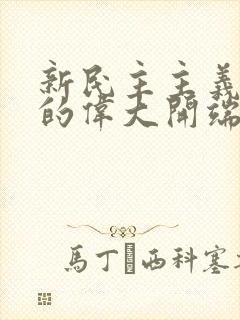 新民主主義
的偉大開端
馬丁 西科塞